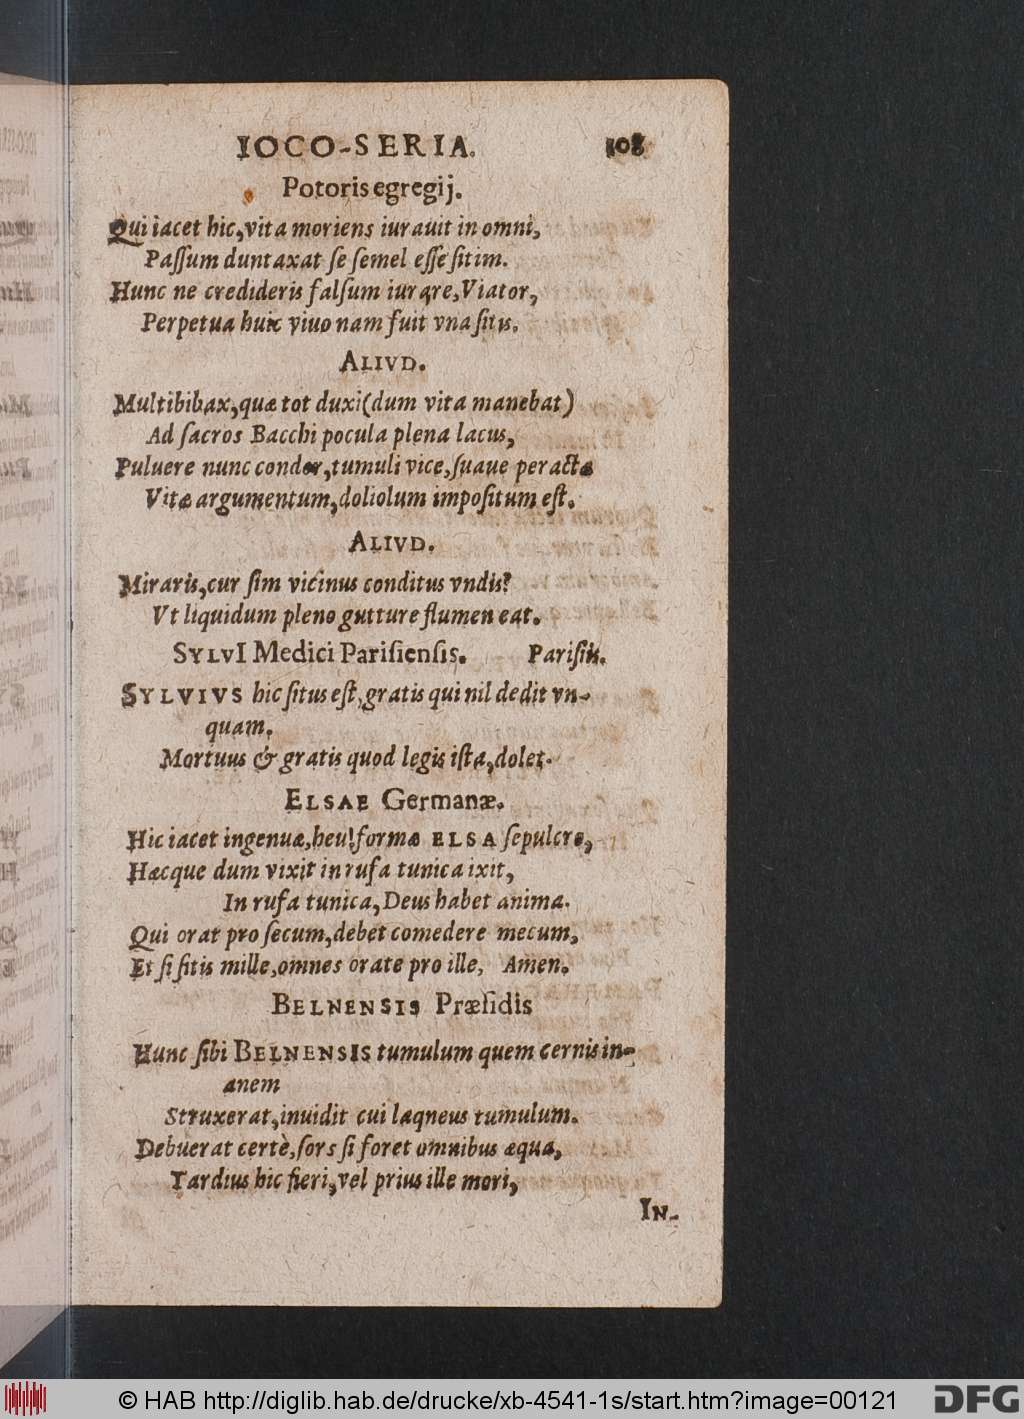 IOCO-SERIA. 108
Potoris egregij.
Qui iacet hic, vita moriens iurauit in omni,
Paſſum duntaxat ſe ſemel eſſe ſitim.
Hunc ne credideris falſum iurare, Viator,
Perpetua huic viuo nam fuit vna ſitis.
ALIVD.
Multibibax, quæ tot duxi (dum vita manebat)
Ad ſacros Bacchi pocula plena lacus,
Puluere nunc condor, tumuli vice, ſuaue peractæ
Vitæ argumentum, doliolum impoſitum eſt.
ALIVD.
Miraris, cur ſim vicinus conditus vndis?
Vt liquidum pleno gutture flumen eat.
SYLVI Medici Pariſienſis. Pariſiis.
SYLVIVS hic ſitus eſt, gratis qui nil dedit vn-
quam.
Mortuus & gratis quod legis iſta, dolet.
ELSAE Germanæ.
Hic iacet ingenuæ, heu! formæ ELSA ſepulcro,
Hæcque dum vixit in rufa tunica ixit,
In rufa tunica, Deus habet anima.
Qui orat pro ſecum, debet comedere mecum,
Et ſi ſitis mille, omnes orate pro ille, Amen.
BELNENSIS Præſidis
Hunc ſibi BELNENSIS tumulum quem cernis in-
anem
Struxerat, inuidit cui laqneus tumulum.
Debuerat certè, ſors ſi foret omnibus æqua,
Tardius hic fieri, vel prius ille mori,
IN-
© HAB http://diglib.hab.de/drucke/xb-4541-1s/start.htm?image=00121
DFG